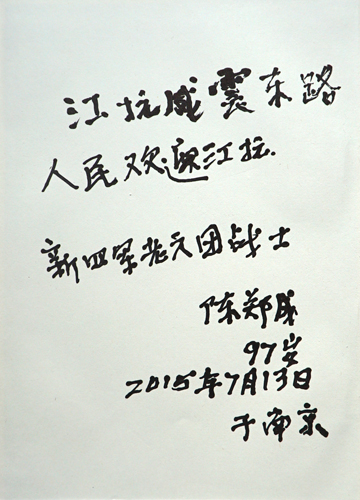 江抗威震东路
人民欢迎江抗.
新四军老六团战士
陈郑成
97岁
2015年7月13日
于南京